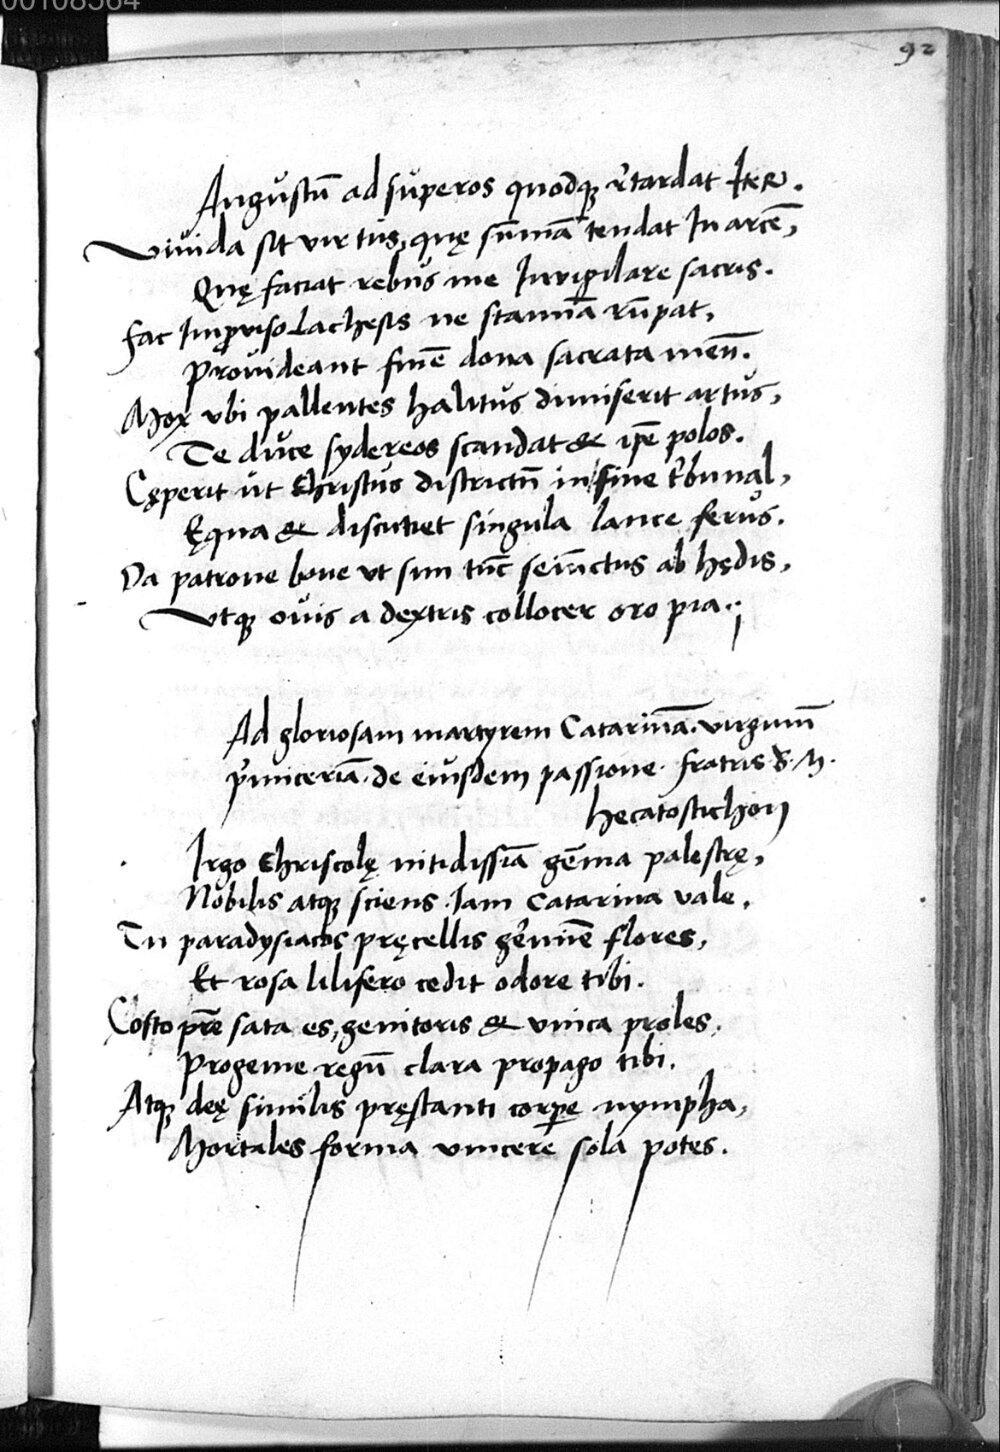 00108564
92
Angustū ad superos quodqꝫ r̄tardat Iter.
Viuida sit virtus, quę sūmā tendat In arcē,
Quę faciat rebus me Inuigilare sacris.
Fac Improuiso Lachesis ne stamīa rūpat,
Prouideant finē dona sacrata meū.
Mox vbi pallentes halitus dimiserit artus,
Te duce sydereos scandat & ipē polos.
Cęperit ut Christus districtū in fine tribunal,
Ęqua & discutiet singula lance ferus.
Da patrone bone vt sim tūc seiūctus ab hędis,
Vtqꝫ ouis a dextris collocer oro pia.
Ad gloriosam martyrem Catarinā. virginū
p̄miceriā. de eiusdem passione. fratris S. M.
hecatostichon
Irgo Chriscolę nitidissīa gēma palestrę,
Nobilis atqꝫ sciens Iam Catarina vale.
Tu paradysiacos pręcellis gērmīe flores,
Et rosa lilifero cedit odore tibi.
Costo prē sata es, genitoris & vnica proles.
Progenie regū clara propago tibi.
Atqꝫ deę similis pręstanti corpe nympha,
Mortales forma vincere sola potes.